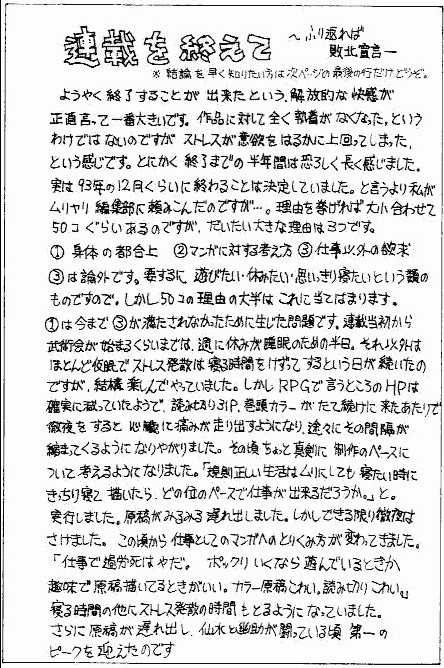 連載を終えて
〜ふり返れば
敗北宣言〜
※結論を早く知りたい方は次ページの最後の行だけどうぞ。
ようやく終了することが出来たという、解放的な快感が
正直言って一番大きいです。作品に対して全く執着がなくなった、という
わけではないのですがストレスが意欲をはるかに上回ってしまった、
という感じです。とにかく終了までの半年間は恐ろしく長く感じました。
実は93年の12月くらいに終わることは決定していました。と言うより私が
ムリヤリ編集部に頼みこんだのですが…。理由を挙げれば大小合わせて
50コぐらいあるのですが、だいたい大きな理由は3つです。
① 身体の都合上 ②マンガに対する考え方 ③仕事以外の欲求
③は論外です。要するに遊びたい・休みたい・思いっきり寝たいという類の
ものですので。しかし50コの理由の大半はこれに当てはまります。
①は今まで③が満たされなかったために生じた問題です。連載当初から
武術会が始まるくらいまでは、週に休みが睡眠のための半日。それ以外は
ほとんど夜眠でストレス発散は寝る時間をけずってするという日が続いたの
ですが、結構楽しんでやっていました。しかしRPGで言うところのHPは
確実に減っていたようで、読み切り31P、巻頭カラーがたて続けに来たあたりで
徹夜をすると心臓に痛みが走り出すようになり、途々にその間隔が
縮まってくるようになりやがりました。その頃ちょっと真剣に制作のペースに
ついて考えるようになりました。「規則正しい生活はムリにしても寝たい時に
きっちり寝て描いたら、どの位のペースで仕事が出来るだろうか。」と。
実行しました。原稿がみるみる遅れ出しました。しかしできる限り徹夜は
さけました。この頃から仕事としてのマンガへのとりくみ方が変わってきました。
「仕事で過労死はやだ。ポックリいくなら遊んでいるときか
趣味で原稿描いてるときがいい。カラー原稿こわい。読み切りこわい。」
寝る時間の他にストレス発散の時間もとるようになっていました。
さらに原稿が遅れ出し、仙水と幽助が闘っている頃 第一の
ピークを迎えたのです